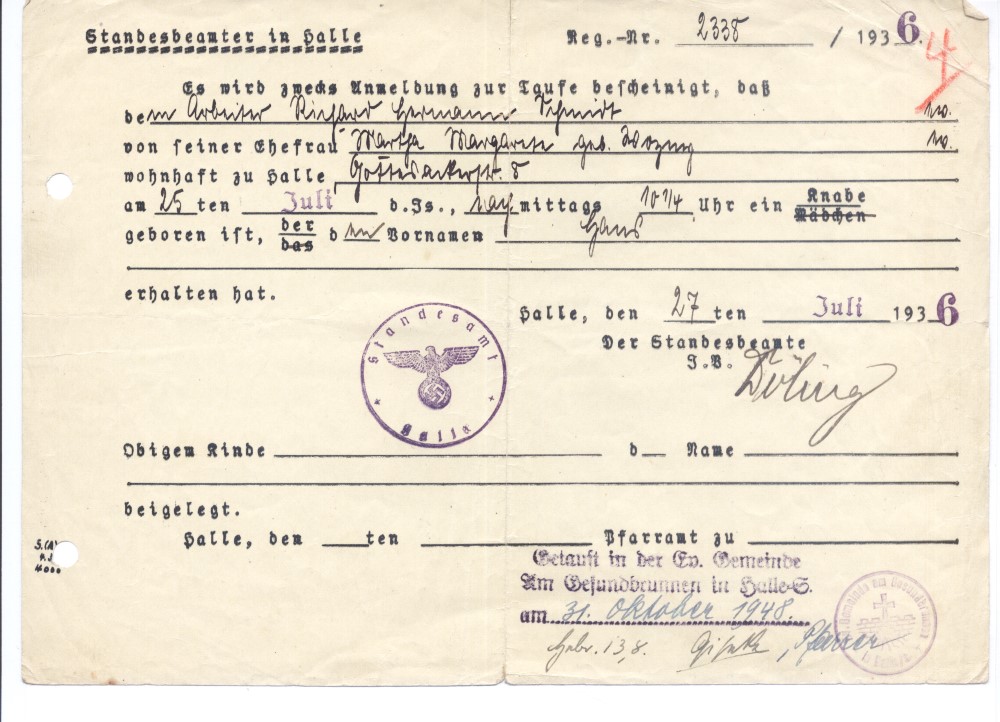 Standesbeamter in Halle
Reg.-Nr. 2338 / 1936.
Es wird zwecks Anmeldung zur Taufe bescheinigt, daß
dem Arbeiter Richard Hermann Schmidt
von seiner Ehefrau Martha Margarete geb.
wohnhaft zu Halle, Gottesackerstr. 8
am 25 ten Juli d. Js., nachmittags 10 1/4 Uhr ein Knabe
Mädchen
geboren ist, der
das den Vornamen Hans
erhalten hat.
Halle, den 27 ten Juli 1936
Der Standesbeamte
I.V.
Standesamt
Halle
Obigem Kinde d Name
beigelegt.
Halle, den ten Pfarramt zu
Getauft in der Ev. Gemeinde
Am Gesundbrunnen in Halle-S.
am 31. Oktober 1948.
Pfarrer